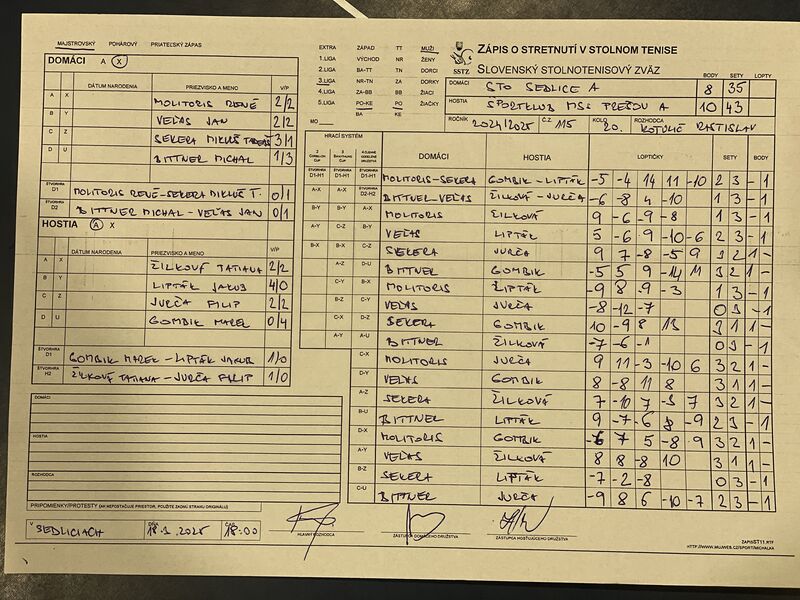 MAJSTROVSKÝ POHÁROVÝ PRIATEĽSKÝ ZÁPAS
DOMÁCI A X
DÁTUM NARODENIA PRIEZVISKO A MENO V/P
A X MOLITORIS RENÉ 2/2
B Y VEĽAS JAN 2/2
C Z SEKERA MIKUŠ 3/1
D U BITTNER MICHAL 1/3
ŠTVORHRA D1 MOLITORIS RENÉ-SEKERA MIKUŠ T. 0/1
ŠTVORHRA D2 BITTNER MICHAL - VEĽAS JAN 0/1
HOSTIA A X
DÁTUM NARODENIA PRIEZVISKO A MENO V/P
A X ŽILKOVÁ TATIANA 2/2
B Y LIPTÁK JAKUB 4/0
C Z JURČA FILIP 2/2
D U GOMBIK MAREK 0/4
ŠTVORHRA D1 GOMBIK MAREK - LIPTÁK JAKUB 1/0
ŠTVORHRA H2 ŽILKOVÁ TATIANA - JURČA FILIP 1/0
DOMÁCI
HOSTIA
ROZHODCA
PRIPOMIENKY/PROTESTY (AK NEPOSTAČUJE PRIESTOR, POUŽITE ZADNÚ STRANU ORIGINÁLU)
V SEDLICIACH DŇA 18.1.2025 ČAS 18:00
HLAVNÝ ROZHODCA
ZÁSTUPCA DOMÁCEHO DRUŽSTVA
ZÁSTUPCA HOSŤUJÚCEHO DRUŽSTVA
EXTRA ZÁPAD TT MUŽI
1.LIGA VÝCHOD NR ŽENY
2.LIGA BA-TT TN DORCI
3.LIGA NR-TN ZA DORKY
4.LIGA ZA-BB BB ŽIACI
5.LIGA PO-KE PO ŽIAČKY
MO BA KE
SSTZ
ZÁPIS O STRETNUTÍ V STOLNOM TENISE
SLOVENSKÝ STOLNOTENISOVÝ ZVÄZ
BODY SETY LOPTY
DOMÁCI STO SEDLICE A 8 35
HOSTIA SPORTKLUB MSS PREŠOV A 10 43
ROČNÍK 2024/2025 Č.Z. 115 KOLO 20. ROZHODCA KOTULIČ RASTISLAV
HRACÍ SYSTÉM
DOMÁCI HOSTIA LOPTIČKY SETY BODY
ŠTVORHRA D1-H1 ŠTVORHRA D1-H1 ŠTVORHRA D1-H1 MOLITORIS-SEKERA GOMBIK-LIPTÁK -5 -4 14 11 -10 2 3 - 1
A-X A-X ŠTVORHRA D2-H2 BITTNER-VEĽAS ŽILKOVÁ-JURČA -6 -8 4 -10 1 3 - 1
B-Y B-Y A-X MOLITORIS ŽILKOVÁ 9 -6 -9 -8 1 3 - 1
A-Y C-Z B-Y VEĽAS LIPTÁK 5 -6 9 -10 -6 2 3 - 1
B-X B-X C-Z SEKERA JURČA 9 7 -8 -5 9 3 2 1 -
A-Z D-U BITTNER GOMBIK -5 5 9 -14 11 3 2 1 -
C-Y B-X MOLITORIS LIPTÁK -9 8 -9 -3 1 3 - 1
B-Z C-Y VEĽAS JURČA -8 -12 -7 0 3 - 1
C-X D-Z SEKERA GOMBIK 10 -9 8 13 3 1 1 -
A-Y A-U BITTNER ŽILKOVÁ -7 -6 -1 0 3 - 1
C-X MOLITORIS JURČA 9 11 -3 -10 6 3 2 1 -
D-Y VEĽAS GOMBIK 8 -8 11 8 3 1 1 -
A-Z SEKERA ŽILKOVÁ 7 -10 7 -3 7 3 2 1 -
B-U BITTNER LIPTÁK 9 -7 -6 8 -9 2 3 - 1
D-X MOLITORIS GOMBIK -6 7 5 -8 9 3 2 1 -
A-Y VEĽAS ŽILKOVÁ 8 8 -8 10 3 1 1 -
B-Z SEKERA LIPTÁK -7 -2 -8 0 3 - 1
C-U BITTNER JURČA -9 8 6 -10 -7 2 3 - 1
ZAPISST11.RTF
HTTP://WWW.MUJWEB.CZ/SPORT/MICHALKA